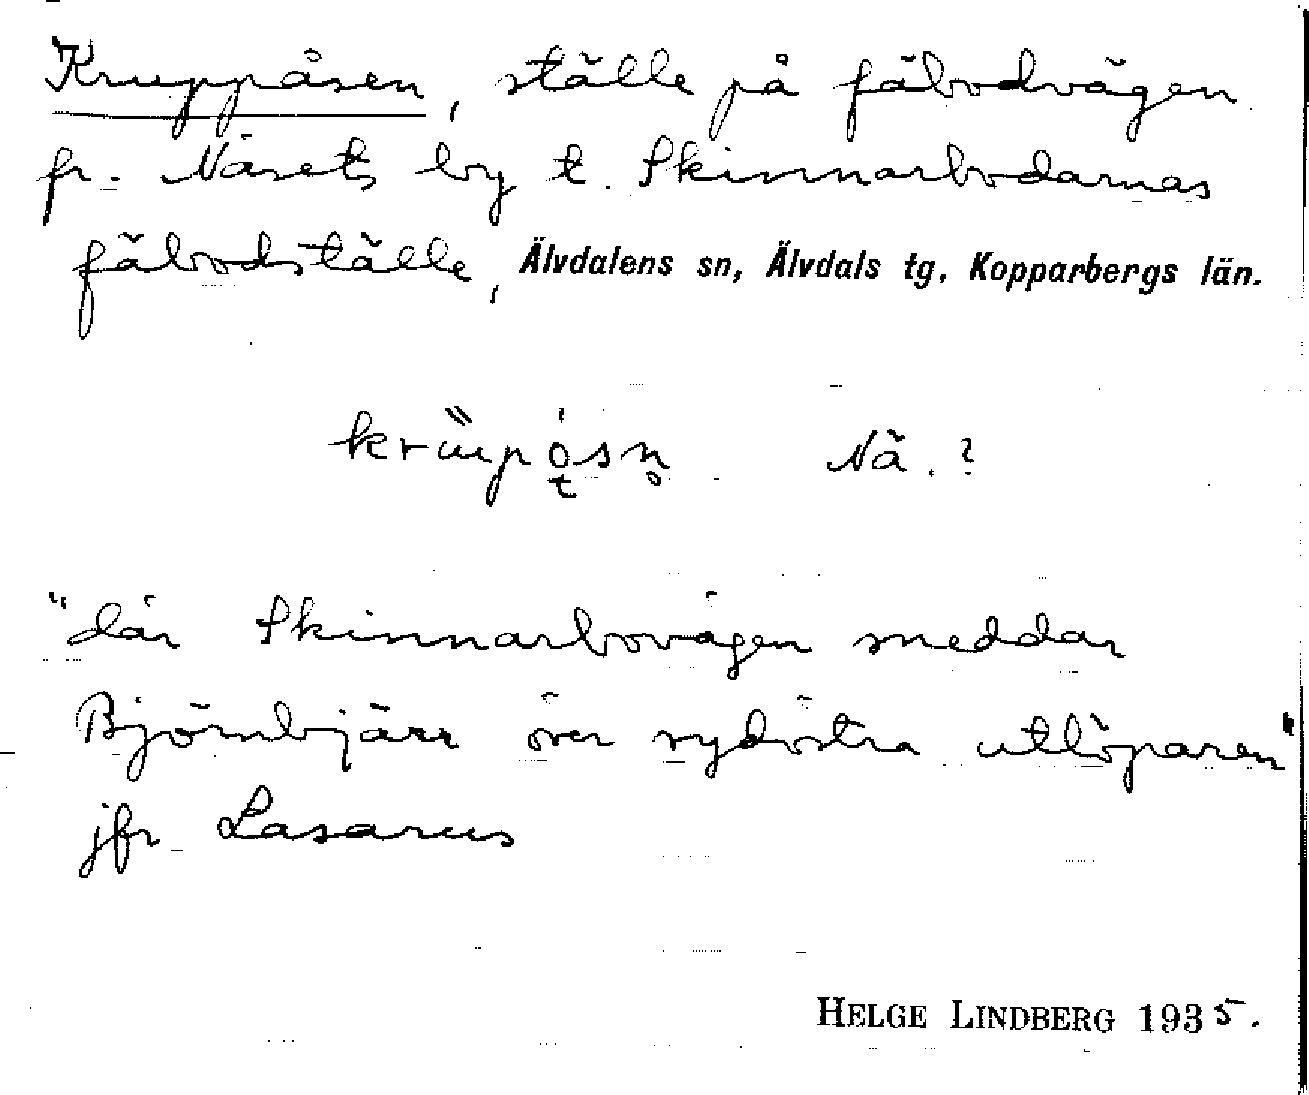 Kruppåsen, ställe på fäbodvägen
fr. Näsets by t. Skinnarbodarnas
fäbodställe, Älvdalens sn, Älvdals tg, Kopparbergs län.
Nä. ?
"där Skinnarbovägen sneddar
Björnbjärr över sydöstra utlöparen"
jfr Lasarus
HELGE LINDBERG 1935.